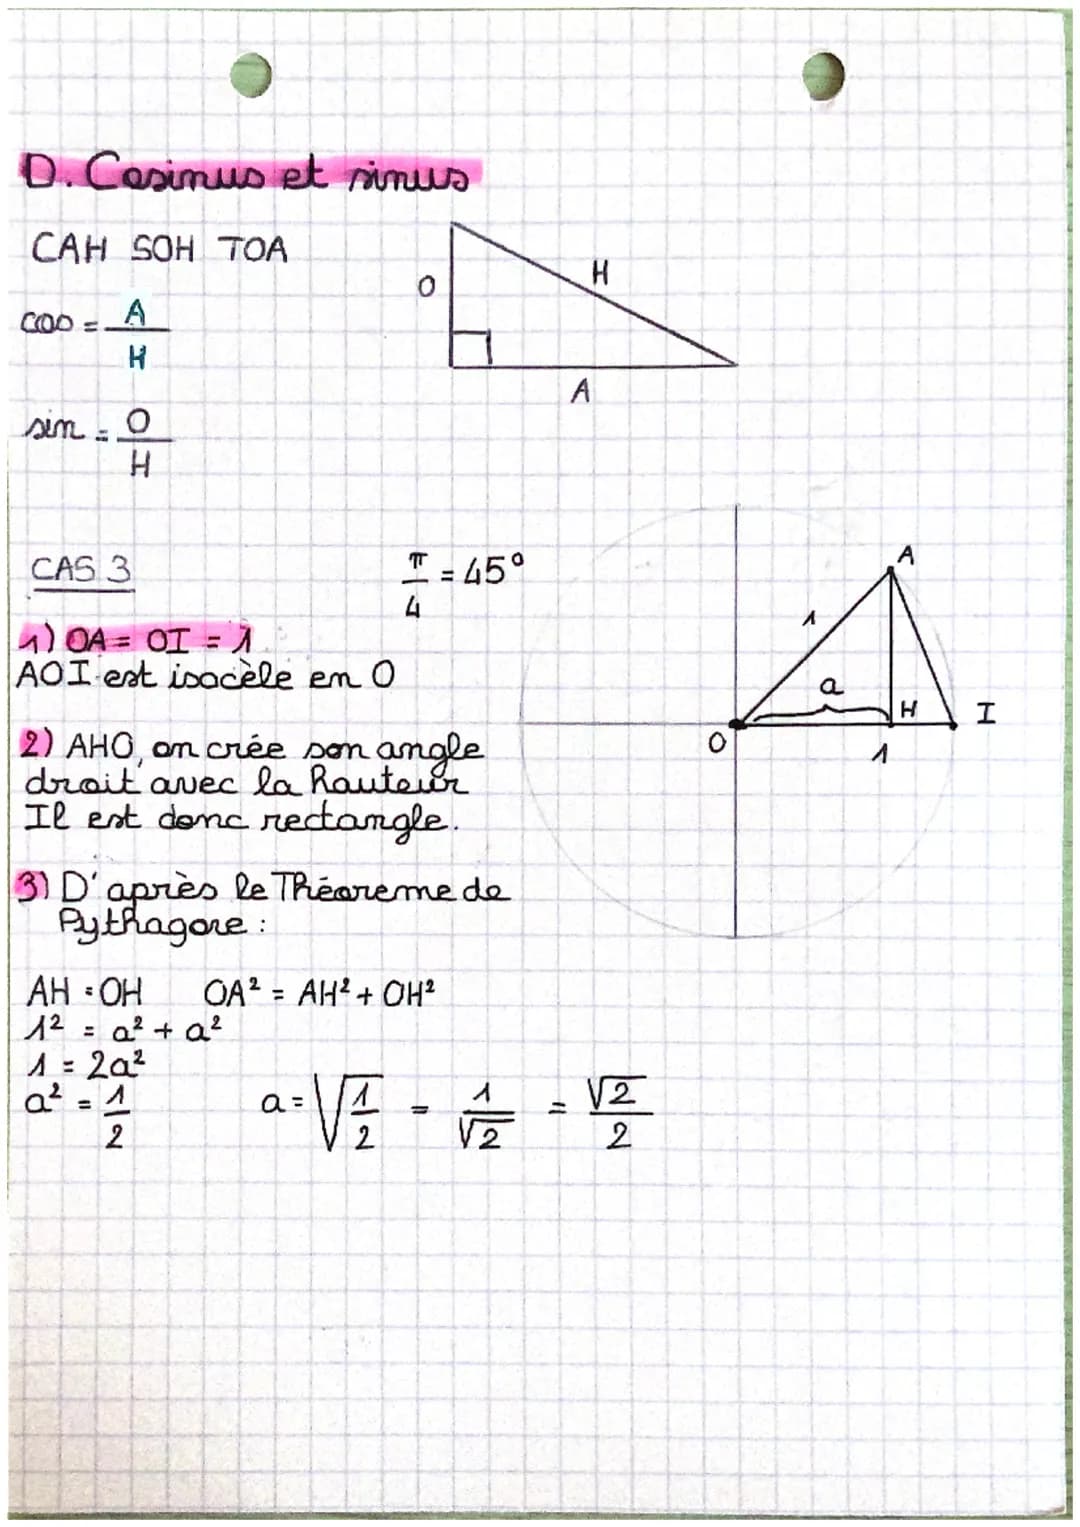 D. Cosinus et sinus
CAH SOH TOA
cos = A/H
sin = O/H
O
H
A
CAS 3
π/4 = 45°
1) OA = OI = 1
AOI est isocèle en O
2) AHO, on crée son angle
droit avec la hauteur
Il est donc rectangle.
A
1
a
H
I
O
1
3) D'après le Théoreme de
Pythagore :
AH = OH OA² = AH² + OH²
1² = a² + a²
1 = 2a²
a² = 1/2 a = √1/2 = 1/√2 = √2/2